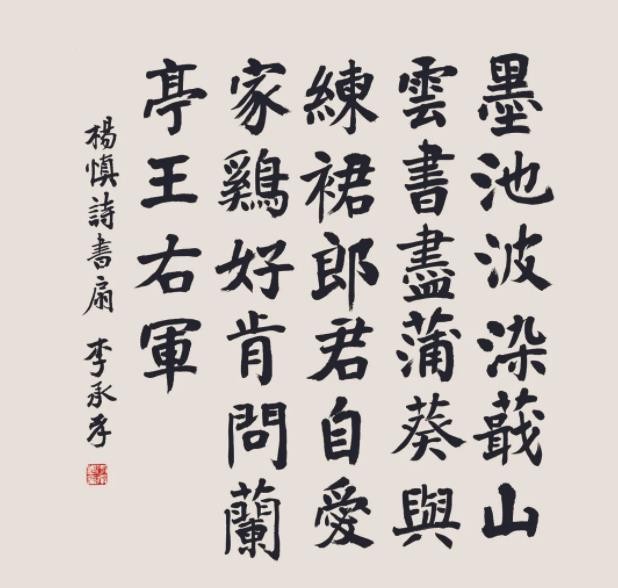 墨池波染蕺山
雲書盡蒲葵與
練裙郎君自愛
家鷄好肯問蘭
亭王右軍
楊慎詩書扇 李承孝